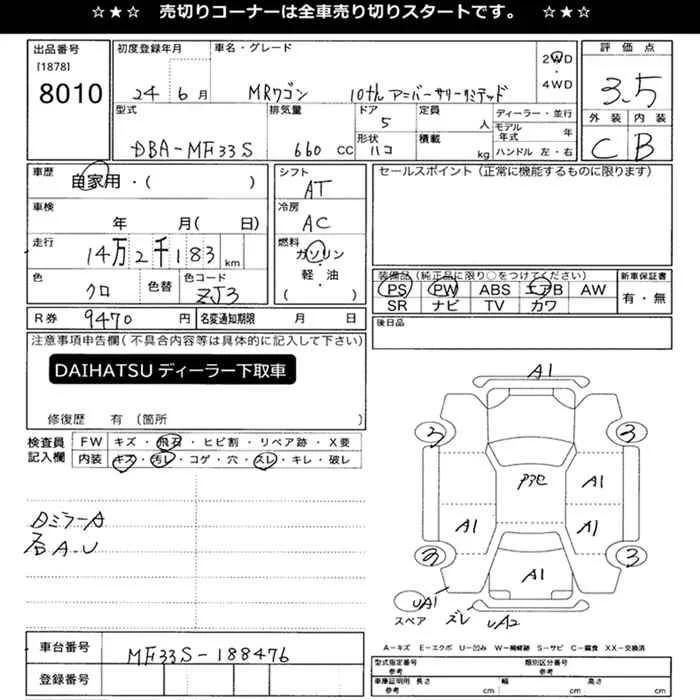 ☆★☆ 売切りコーナーは全車売り切りスタートです。 ☆★☆
出品番号
[1878]
8010
初度登録年月
24 6月
車名・グレード
MRワゴン 10th アニバーサリーリミテッド
2WD
・
4WD
評価点
3.5
外装 内装
C B
型式
DBA-MF33S
排気量
660 CC
ドア
5
形状
ハコ
定員
人
積載
kg
ディーラー・並行
モデル年式 年
ハンドル 左・右
車歴
自家用・( )
シフト
AT
セールスポイント(正常に機能するものに限ります)
車検
年 月( 日)
冷房
AC
走行
14万2千183 km
燃料
ガソリン
・
軽・油
( )
色
クロ
色替
色コード
ZJ3
装備品(純正品に限り○をつけてください)
PS PW ABS エアB AW
SR ナビ TV カワ
新車保証書
有・無
R券 9470 円
名変通知期限 月 日
後日品
注意事項申告欄(不具合内容等は具体的に記入して下さい)
DAIHATSU ディーラー下取車
修復歴 有 〔箇所 〕
検査員
記入欄
FW キズ・飛石・ヒビ割・リペア跡・X要
内装 キズ・汚レ・コゲ・穴・スレ・キレ・破レ
ミラーA
A-U
A1
3 3
A1
A1 A1
3
A1
UA1
スペア
ズレ UA2
A-キズ E-エクボ U-凹み W-補修跡 S-サビ C-腐食 XX-交換済
車台番号
MF33S-188476
登録番号
型式指定番号
参考
類別区分番号
参考
車庫証明用 長さ
参考 cm
幅
cm
高さ
cm